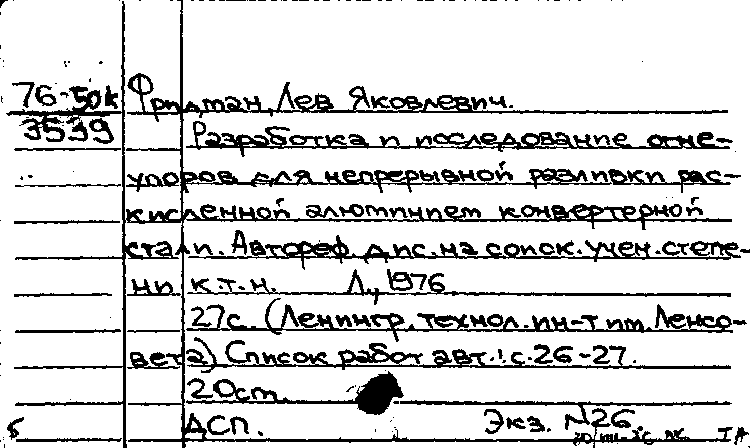 76-50к Фридман, Лев Яковлевич.
3539 Разработка и исследование огне-
упоров для непрерывной разливки рас-
кисленной алюминием конвертерной
стали. Автореф. дис. на соиск. учен. степе-
ни к.т.н. Л., 1976.
27с. (Ленингр. технол. ин-т им. Ленсо-
вета) Список работ авт.: с. 26-27.
20см.
ДСП. Экз. №26
Б